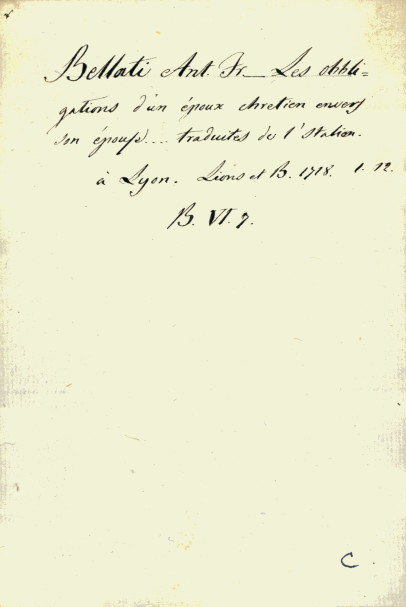 Bellati Ant. Fr_ Les obbli=
gations d'un époux chretien envers
son épouse... traduites de l'Italien.
à Lyon. Lions et B. 1718. 1. 12.
B. VI. 7.
C.